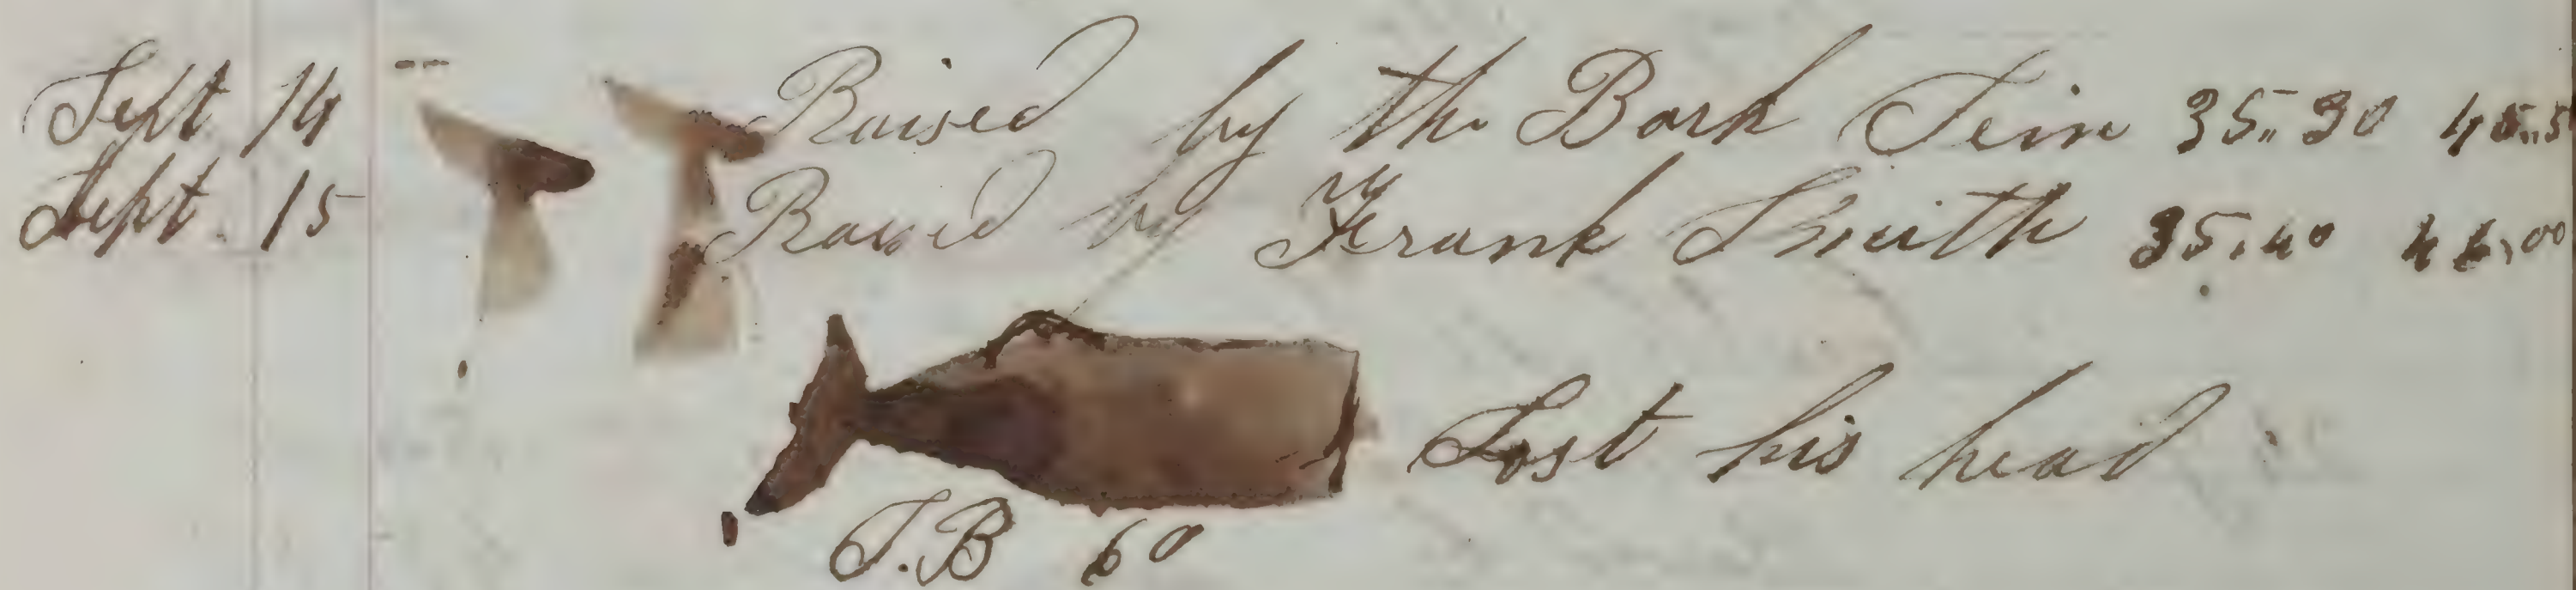 Sept 14 Raised by the Bark Sein 35.. 30 45..5
Sept. 15 Raised by Frank Smith 35.40 46.00
Lost his head
S.B 60